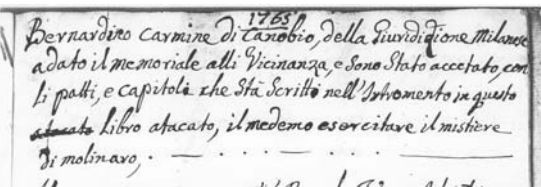 1765
Bernardino Carmine di Canobio, della Giuridizione Milanese
adato il memoriale alli Vicinanza, e sono stato accetato, con
li patti, e capitoli che stà scritto nell'Istromento in questo
atacato Libro atacato, il medemo esercitare il mistiere
di molinaro,. — . . . —